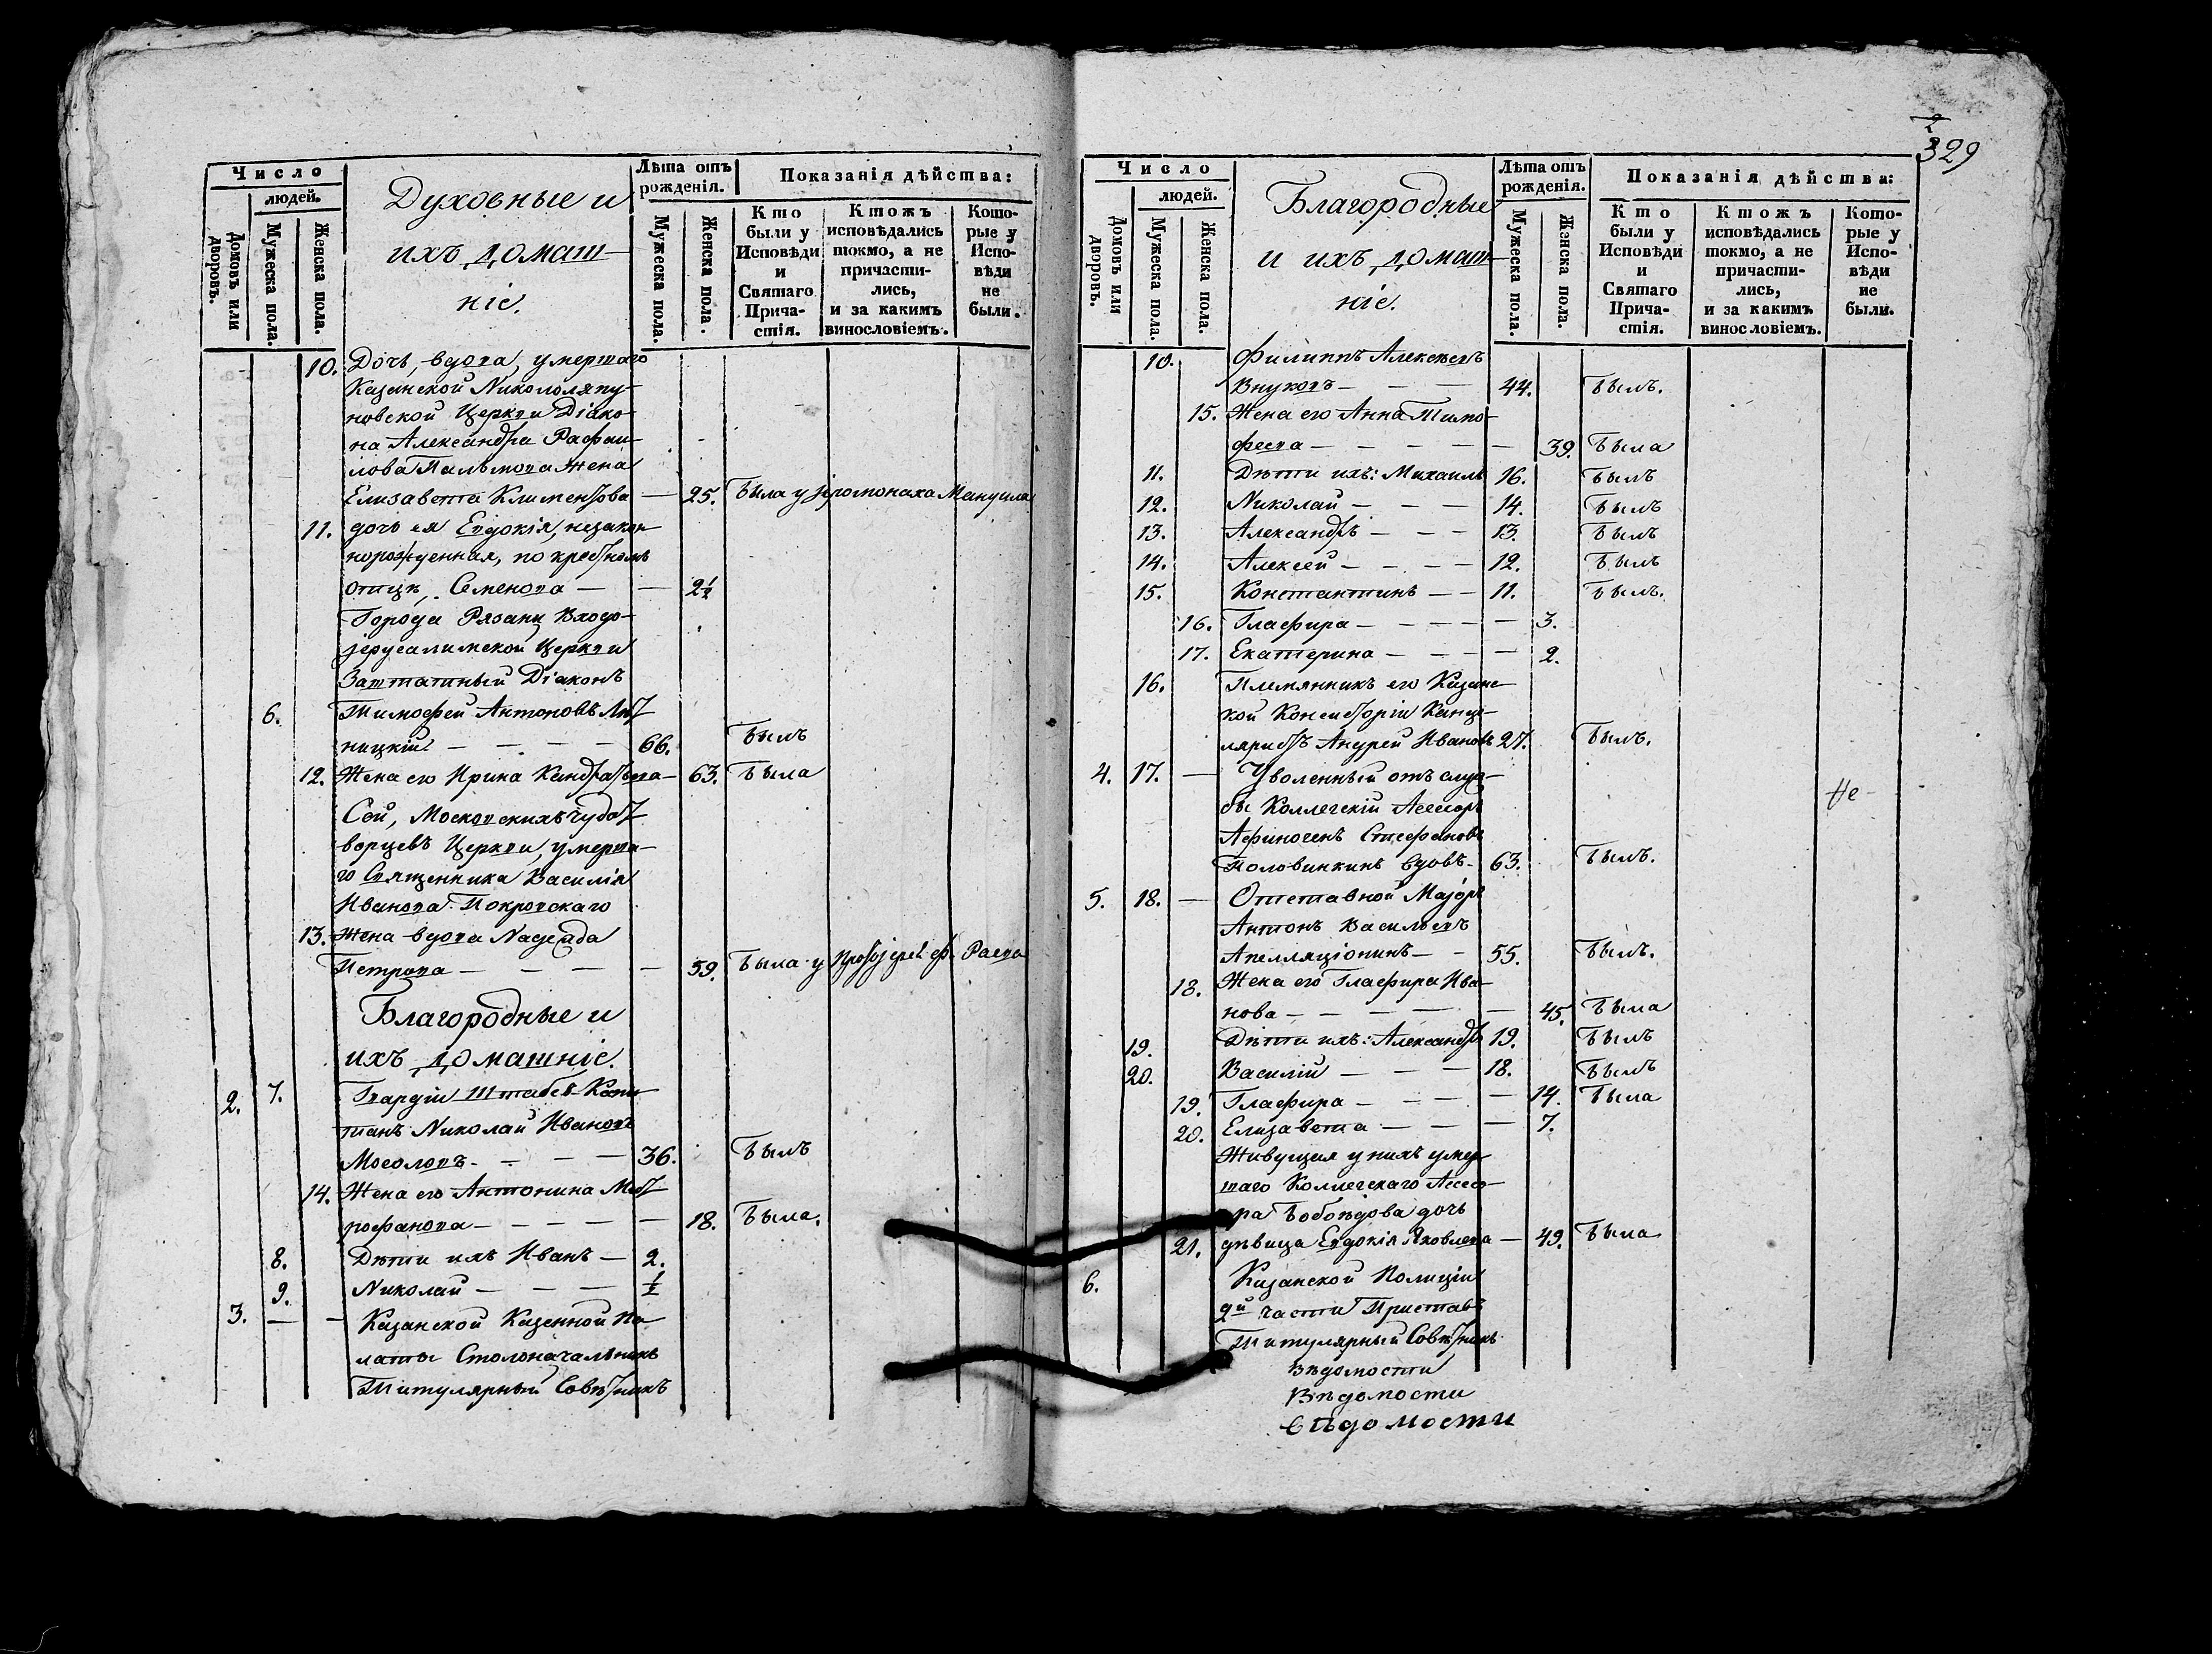 2
329
Число
людей.
Домовъ или дворовъ.
Мужеска пола.
Женска пола.
Духовные и
ихъ домаш-
ніе.
Лѣта отъ рожденія.
Мужеска пола.
Женска пола.
Показанія дѣйства:
Кто были у Исповѣди и Святаго Прича-стія.
Ктожъ исповѣдались токмо, а не причасти-лись, и за какимъ винословіемъ.
Кото-рые у Испо-вѣди не были.
10. Дочь, вдова, умершаго
Казанской Никололяпу-
новской Церкви Діако-
на Александра Рафаи-
лова Пальмова жена
Елизавета Климентова — 25. была у Іеромонаха Мануила
11. дочь ея Евдокія, незакон-
норожденная, по крестномъ
отцѣ, Семенова — — 2½
Города Рязани Входо-
іерусалимской Церкви
Заштатный Діаконъ
6. Тимофей Антоновъ
ницкій — — — — 66. былъ
12. Жена его Ирина Кандратьева — 63. была
Сей, Московскихъ Чудот-
ворцевъ Церкви, умерша-
го Священника Василія
Иванова Покровскаго
13. жена вдова Надежда
Петрова — — — — 59. была у Протоіерея
Благородные и
ихъ домашніе.
2. 7. Гвардіи Штабсъ-Капи-
танъ Николай Ивановъ
Мосоловъ — — — 36. былъ
14. Жена его Антонина Мит-
рофанова — — — — — 18. была.
8. Дѣти ихъ Иванъ — 2.
9. Николай — — — ½
3. — — Казанской Казенной Па-
латы Столоначальникъ
Титулярный Совѣтникъ
Число
людей.
Домовъ или дворовъ.
Мужеска пола.
Женска пола.
Благородные
и ихъ домаш-
ніе.
Лѣта отъ рожденія.
Мужеска пола.
Женска пола.
Показанія дѣйства:
Кто были у Исповѣди и Святаго Прича-стія.
Ктожъ исповѣдались токмо, а не причасти-лись, и за какимъ винословіемъ.
Кото-рые у Испо-вѣди не были.
10. Филиппъ Алексѣевъ
Внуковъ — — — 44. былъ.
15. Жена его Анна Тимо-
феева — — — — — 39. была
11. Дѣти ихъ: Михаилъ 16. былъ
12. Николай — — — 14. былъ
13. Александръ — — — 13. былъ
14. Алексей — — — — 12. былъ
15. Константинъ — — 11. былъ.
16. Глафира — — — — — 3.
17. Екатерина — — — — 2.
16. Племянникъ его Казанс-
кой Консисторіи Канце-
ляристъ Андрей Ивановъ 27. былъ.
4. 17. — Уволенный отъ служ-
бы Коллегскій Асессоръ
Афиногенъ Стефановъ
Половинкинъ вдовъ — 63. былъ.
Не
5. 18. — Отставной Маіоръ
Антонъ Васильевъ
Апелляціонинъ — — 55. былъ.
18. Жена его Глафира Ива-
нова — — — — — 45. была
19. Дѣти ихъ: Александръ 19. былъ
20. Василій — — — 18. былъ
19. Глафира — — — — 14. была
20. Елизавета — — — — 7.
Живущая у нихъ умер-
шаго Коллегскаго Асессо-
ра Бобоѣдова дочь
21. дѣвица Евдокія Яковлева — 49. была
6. Казанской Полиціи
2й части Приставъ
Титулярный Совѣтникъ
Вѣдомости
Вѣдомости
вѣдомости